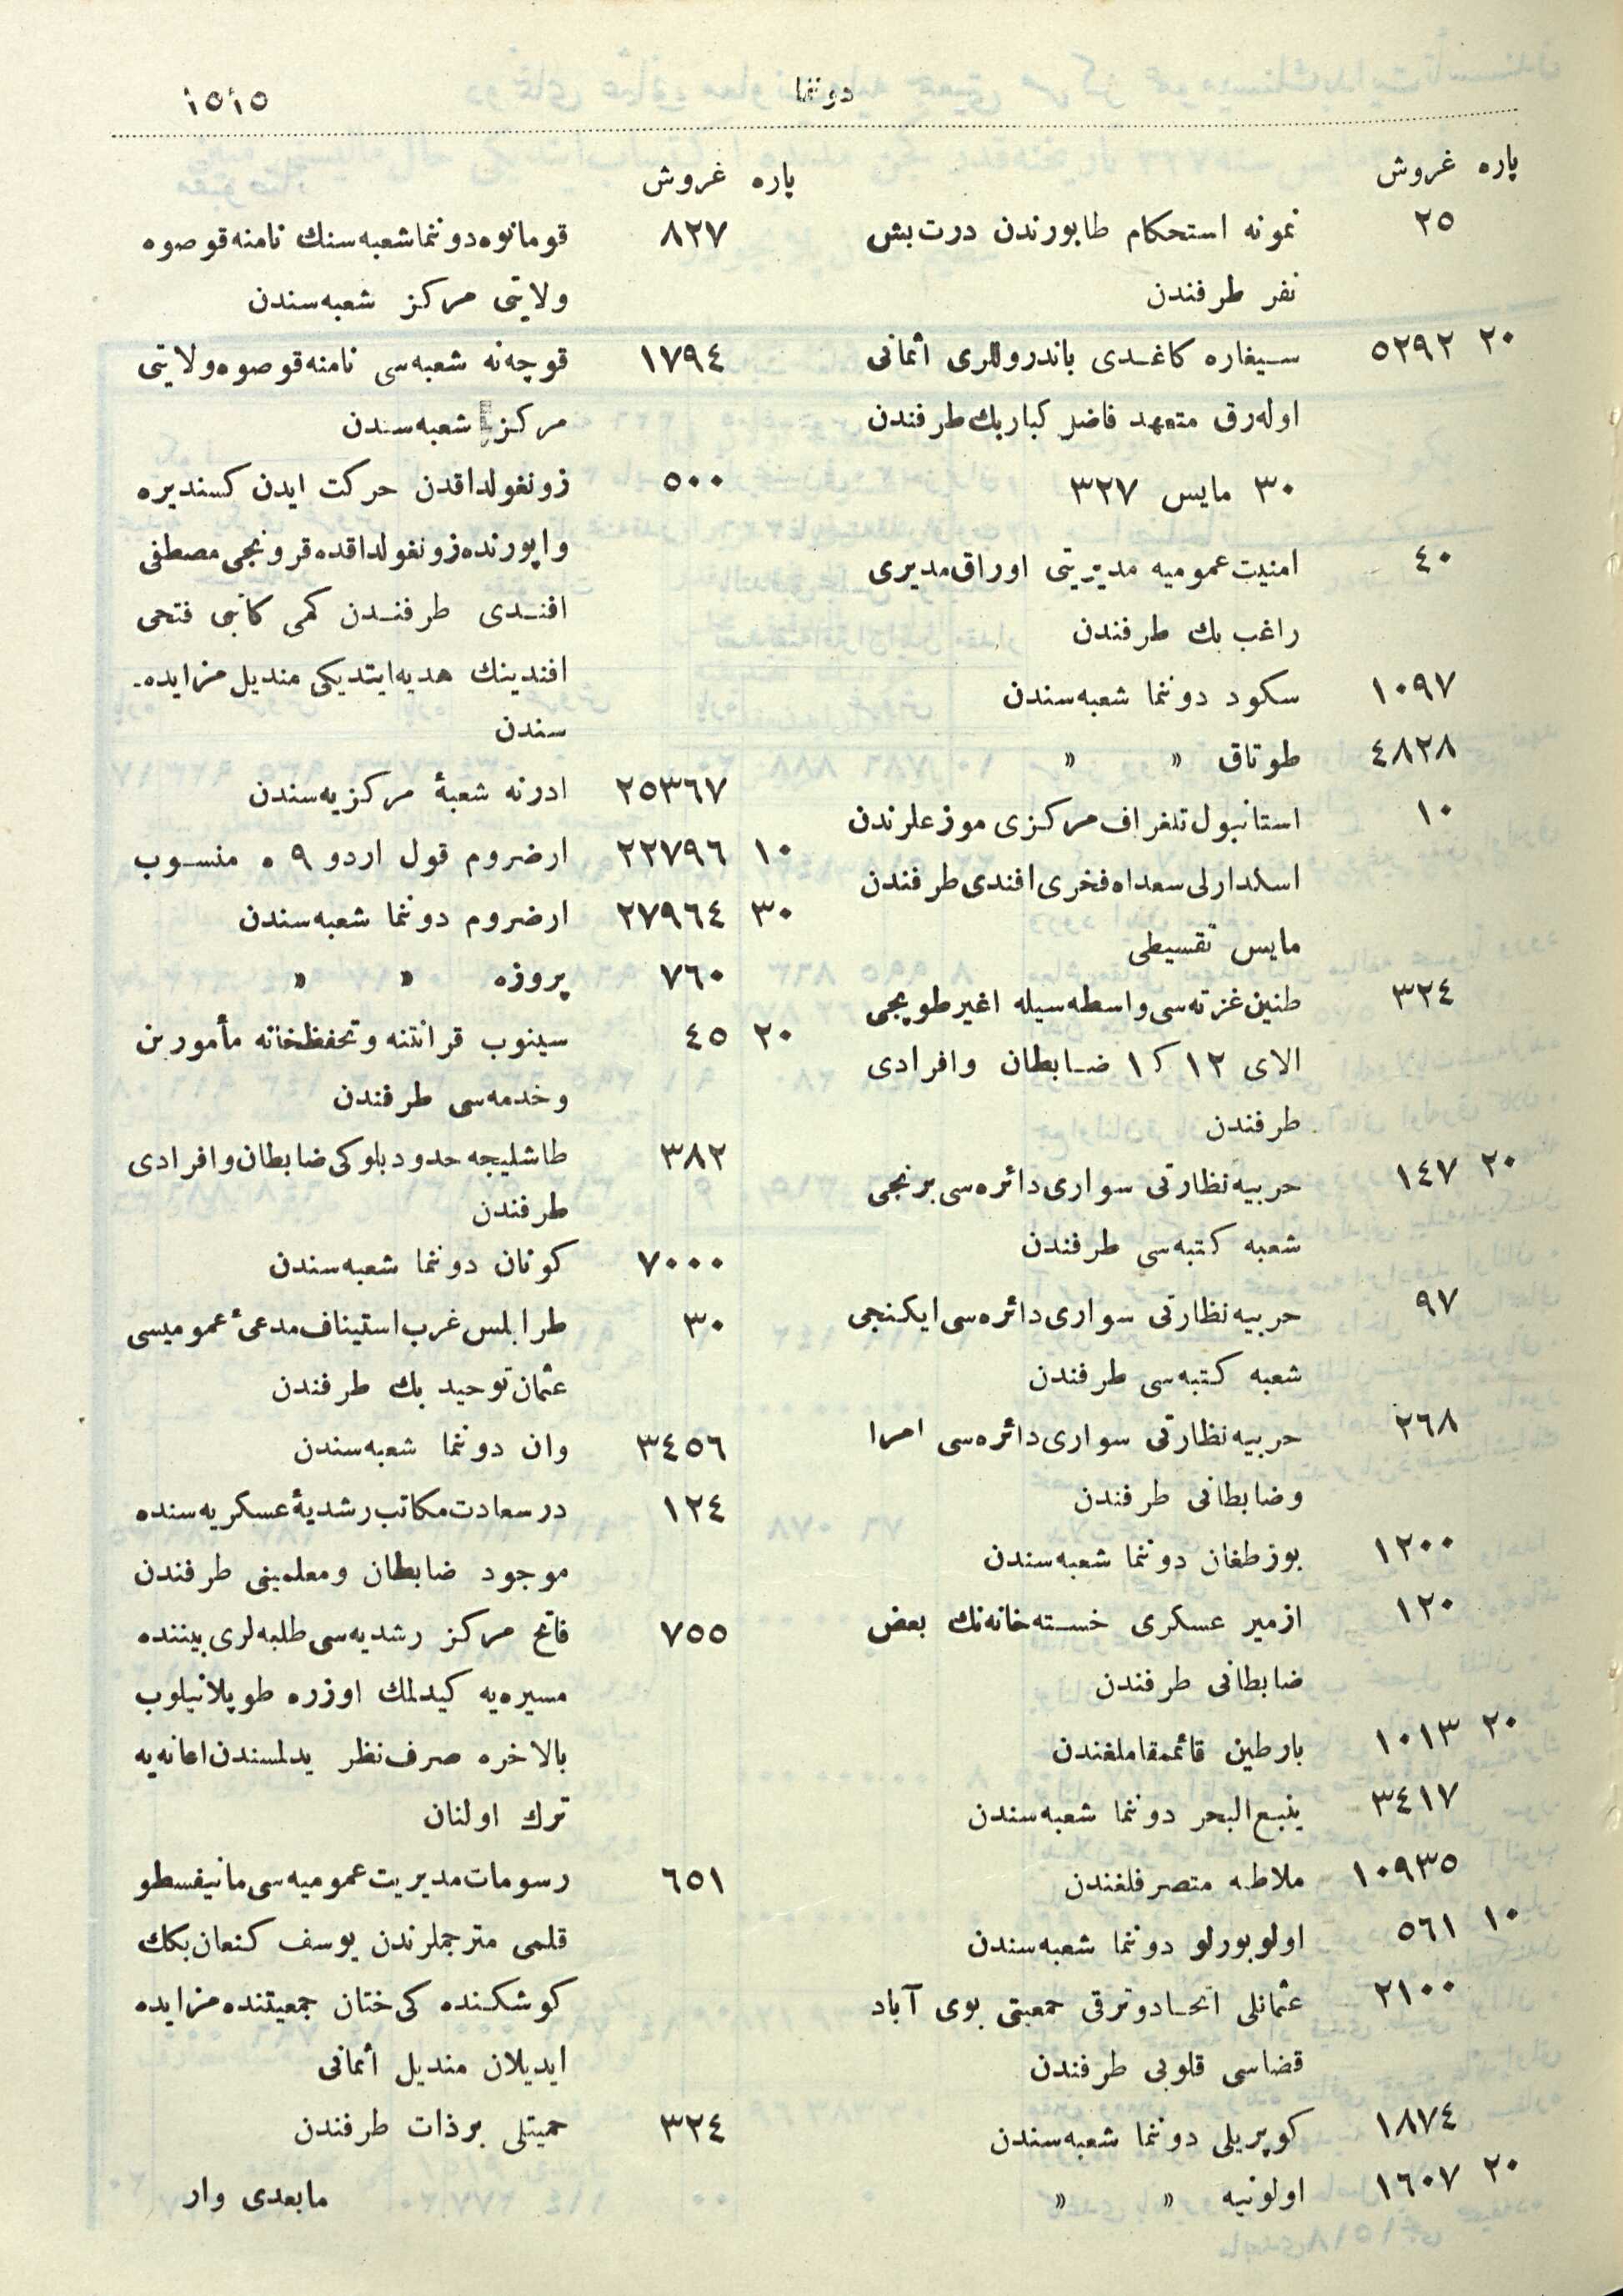 دوننما
١٥١٥
پاره غروش
٢٥ نمونه استحكام طابورندن درت بش
نفر طرفندن
٢٠ ٥٢٩٢ سیغاره كاغدی باندروللری اثمانی
اوله‌رق متعهد فاضل كبار بك طرفندن
٣٠ مایس ٣٢٧
٤٠ امنیت عمومیه مدیریتی اوراق مدیری
راغب بك طرفندن
١٠٩٧ سكود دوننما شعبه‌سندن
٤٨٢٨ طوتاق » »
١٠ استانبول تلغراف مركزی موزعلرندن
اسكدارلی سعداه فخری افندی طرفندن
مایس تقسیطی
٣٢٤ طنین غزته‌سی واسطه‌سیله اغیر طوپجی
الای ١٢ ك ١ ضابطان وافرادی
طرفندن
٢٠ ١٤٧ حربیه نظارتی سواری دائره‌سی برنجی
شعبه كتبه‌سی طرفندن
٩٧ حربیه نظارتی سواری دائره‌سی ایكنجی
شعبه كتبه‌سی طرفندن
٢٦٨ حربیه نظارتی سواری دائره‌سی امرا
وضابطانی طرفندن
١٢٠٠ بوزطغان دوننما شعبه‌سندن
١٢٠ ازمیر عسكری خسته‌خانه‌نك بعض
ضابطانی طرفندن
٢٠ ١٠١٣ بارطین قائممقاملغندن
٣٤١٧ ینبع البحر دوننما شعبه‌سندن
١٠٩٣٥ ملاطیه متصرفلغندن
١٠ ٥٦١ اولوبورلو دوننما شعبه‌سندن
٢١٠٠ عثمانلی اتحاد وترقی جمعیتی بوی آباد
قضاسی قلوبی طرفندن
١٨٧٤ كوپریلی دوننما شعبه‌سندن
٢٠ ١٦٠٧ اولونیه » »
پاره غروش
٨٢٧ قومانوه دوننما شعبه‌سنك نامنه قوصوه
ولایتی مركز شعبه‌سندن
١٧٩٤ قوچه‌نه شعبه‌سی نامنه قوصوه ولایتی
مركز شعبه‌سندن
٥٠٠ زونغولداقدن حركت ایدن كسندیره
واپورنده زونغولداقده قرونجی مصطفی
افندی طرفندن كمی كاتبی فتحی
افندینك هدیه ایتدیكی مندیل مزایده-
سندن
٢٥٣٦٧ ادرنه شعبۀ مركزیه‌سندن
١٠ ٢٢٧٩٦ ارضروم قول اردو ٩ ه منسوب
٣٠ ٢٧٩٦٤ ارضروم دوننما شعبه‌سندن
٧٦٠ پروزه » »
٢٠ ٤٥ سینوب قرانتنه وتحفظخانه مأمورین
وخدمه‌سی طرفندن
٣٨٢ طاشلیجه حدود بلوكی ضابطان وافرادی
طرفندن
٧٠٠٠ كونان دوننما شعبه‌سندن
٣٠ طرابلس غرب استیناف مدعیٔ عمومیسی
عثمان توحید بك طرفندن
٣٤٥٦ وان دوننما شعبه‌سندن
١٢٤ درسعادت مكاتب رشدیۀ عسكریه‌سنده
موجود ضابطان ومعلمینی طرفندن
٧٥٥ فاتح مركز رشدیه‌سی طلبه‌لری بیننده
مسیره‌یه كیدلمك اوزره طوپلانیلوب
بالاخره صرف نظر یدلمسندن اعانه‌یه
ترك اولنان
٦٥١ رسومات مدیریت عمومیه‌سی مانیفسطو
قلمی مترجملرندن یوسف كنعان بكك
كوشكنده كی ختان جمعیتنده مزایده
ایدیلان مندیل أثمانی
٣٢٤ حمیتلی برذات طرفندن
مابعدی وار